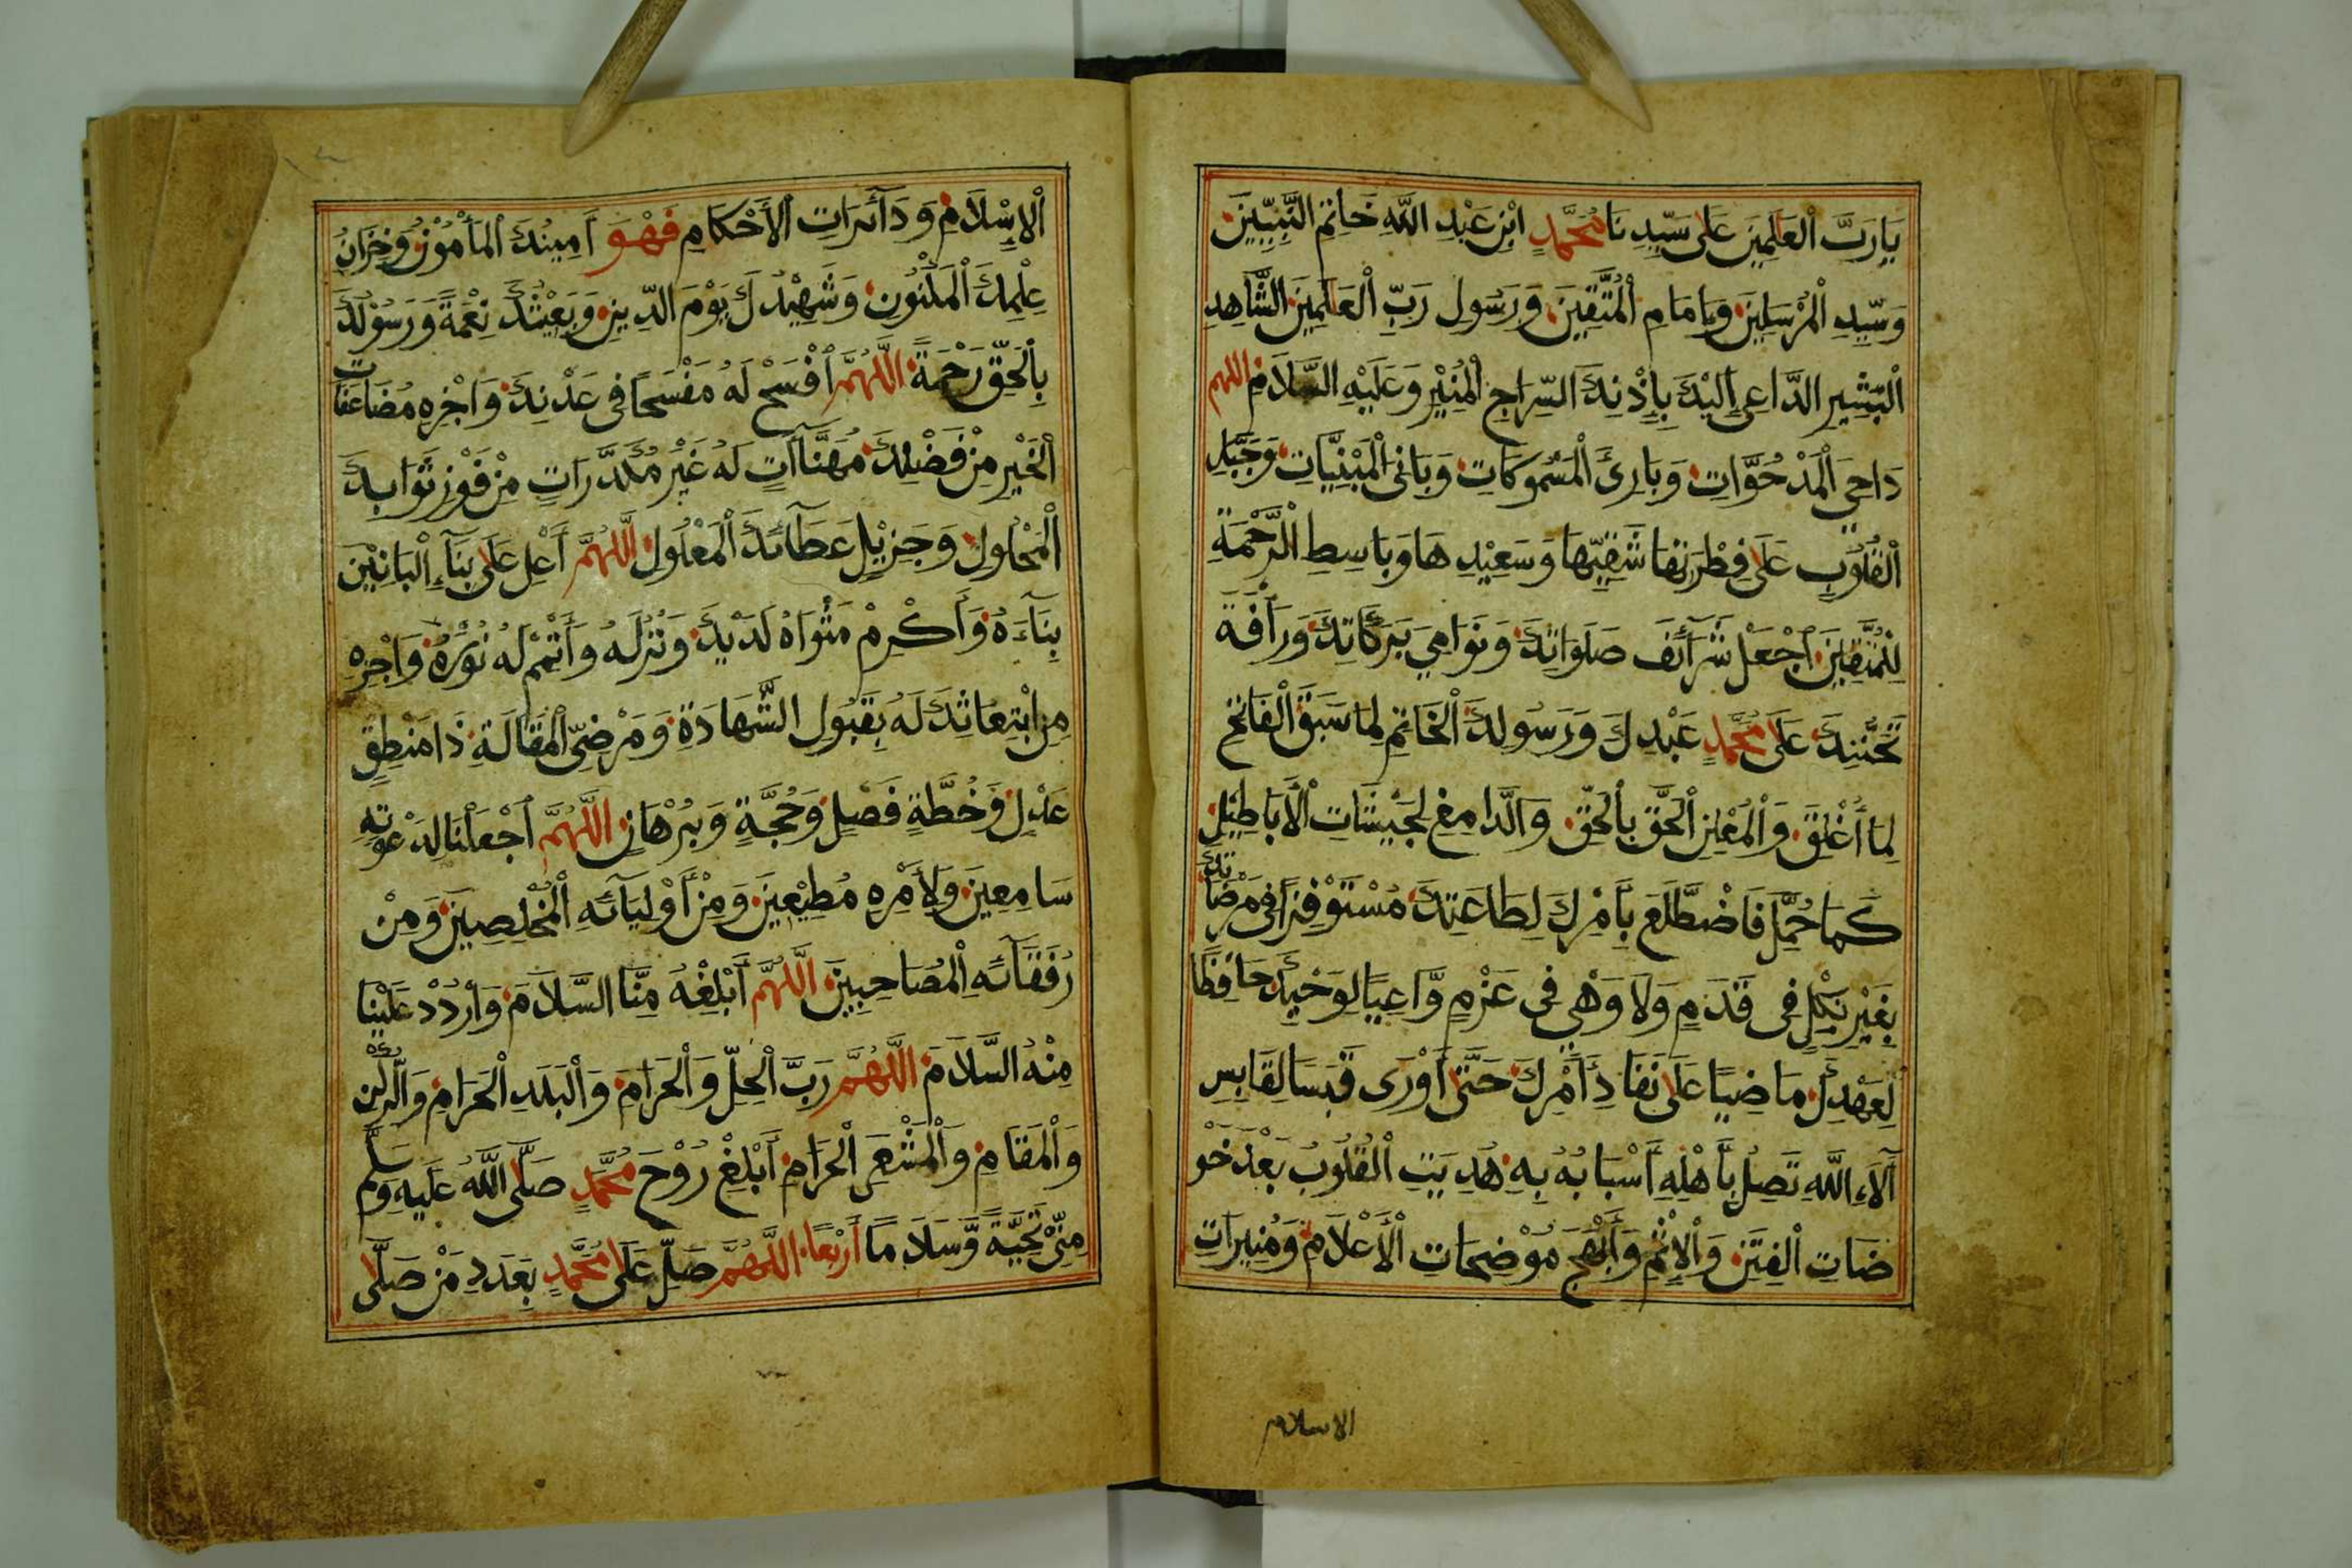 يَارَبَّ الْعَلَمِينَ عَلَى سَيِّدِنَا مُحَمَّدٍ ابْنِ عَبْدِ اللَّهِ خَاتِمِ النَّبِيِّينَ
وَسَيِّدِ الْمُرْسَلِينَ وَإِمَامِ الْمُتَّقِينَ وَرَسُولِ رَبِّ الْعَلَمِينَ الشَّاهِدِ
الْبَشِيرِ الدَّاعِي إِلَيْكَ بِإِذْنِكَ السِّرَاجِ الْمُنِيْرِ وَعَلَيْهِ السَّلَامُ اللهم
دَاحِيَ الْمَدْحُوَّاتِ وَبَارِئَ الْمَسْمُوكَاتِ وَبَانِيَ الْمَبْنِيَّاتِ وَجَبَّلِ
الْقُلُوبِ عَلَى فِطْرَتِهَا شَقِيِّهَا وَسَعِيْدِهَا وَبَاسِطِ الرَّحْمَةِ
لِلْمُتَّقِينَ اجْعَلْ شَرَآئِفَ صَلَوَاتِكَ وَنَوَامِيَ بَرَكَاتِكَ وَرَأْفَةَ
تَحَنُّنِكَ عَلَى مُحَمَّدٍ عَبْدِكَ وَرَسُولِكَ الْخَاتِمِ لِمَا سَبَقَ الْفَاتِحِ
لِمَا أُغْلِقَ وَالْمُعْلِنِ الْحَقَّ بِالْحَقِّ وَالدَّامِغِ لِجَيْشَاتِ الْأَبَاطِيْلِ
كَمَا حُمِّلَ فَاضْطَلَعَ بِأَمْرِكَ لِطَاعَتِكَ مُسْتَوْفِزًا فِي مَرْضَاتِكَ
بِغَيْرِ نِكْلٍ فِي قَدَمٍ وَلَا وَهْيٍ فِي عَزْمٍ وَّاعِيًا لِوَحْيِكَ حَافِظًا
لِعَهْدِكَ مَاضِيًا عَلَى نَفَاذِ أَمْرِكَ حَتَّى أَوْرَى قَبَسًا لِقَابِسٍ
آلَآءِ اللَّهِ تَصِلُ بِأَهْلِهِ أَسْبَابُهُ بِهِ هُدِيَتِ الْقُلُوبُ بَعْدَ خَوْ
ضَاتِ الْفِتَنِ وَالْإِثْمِ وَأَبْهَجَ مُوْضِحَاتِ الْأَعْلَامِ وَمُنِيرَاتِ
الاسلام
الْإِسْلَامِ وَدَآئِرَاتِ الْأَحْكَامِ فَهْوَ أَمِينُكَ الْمَأْمُوْنُ وَخَزَانُ
عِلْمِكَ الْمَكْنُونِ وَشَهِيْدُكَ يَوْمَ الدِّينِ وَبَعِيْثُكَ نِعْمَةً وَرَسُوْلُكَ
بِالْحَقِّ رَحْمَةً اللَّهُمَّ افْسَحْ لَهُ مَفْسَحًا فِي عَدْنِكَ وَاجْزِهِ مُضَاعَفَاتِ
الْخَيْرِ مِنْ فَضْلِكَ مُهَنَّاآتٍ لَهُ غَيْرَ مُكَدَّرَاتٍ مِنْ فَوْزِ ثَوَابِكَ
الْمَحْلُولِ وَجَزِيْلِ عَطَآئِكَ الْمَعْلُولِ اللَّهُمَّ أَعْلِ عَلَى بِنَآءِ الْبَانِيْنَ
بِنَآءَهُ وَأَكْرِمْ مَثْوَاهُ لَدَيْكَ وَنُزُلَهُ وَأَتْمِمْ لَهُ نُوْرَهُ وَاجْزِهِ
مِنِ ابْتِعَاثِكَ لَهُ بِقَبُولِ الشَّهَادَةِ وَمَرْضِيَّ الْمَقَالَةِ ذَا مَنْطِقٍ
عَدْلٍ وَخُطَّةٍ فَصْلٍ وَحُجَّةٍ وَبُرْهَانٍ اللَّهُمَّ اجْعَلْنَا لِدَعْوَتِهِ
سَامِعِينَ وَلِأَمْرِهِ مُطِيْعِينَ وَمِنْ أَوْلِيَآئِهِ الْمُخْلِصِينَ وَمِنْ
رُفَقَآئِهِ الْمُصَاحِبِينَ اللَّهُمَّ أَبْلِغْهُ مِنَّا السَّلَامَ وَارْدُدْ عَلَيْنَا
مِنْهُ السَّلَامَ اللَّهُمَّ رَبَّ الْحِلِّ وَالْحَرَامِ وَالْبَلَدِ الْحَرَامِ وَالرُّكْنِ
وَالْمَقَامِ وَالْمَشْعَرِ الْحَرَامِ أَبْلِغْ رُوْحَ مُحَمَّدٍ صَلَّى اللَّهُ عَلَيْهِ وَسَلَّمَ
مِنِّيْ تَحِيَّةً وَّسَلَامًا أَرْبَعًا اللَّهُمَّ صَلِّ عَلَى مُحَمَّدٍ بِعَدَدِ مَنْ صَلَّى